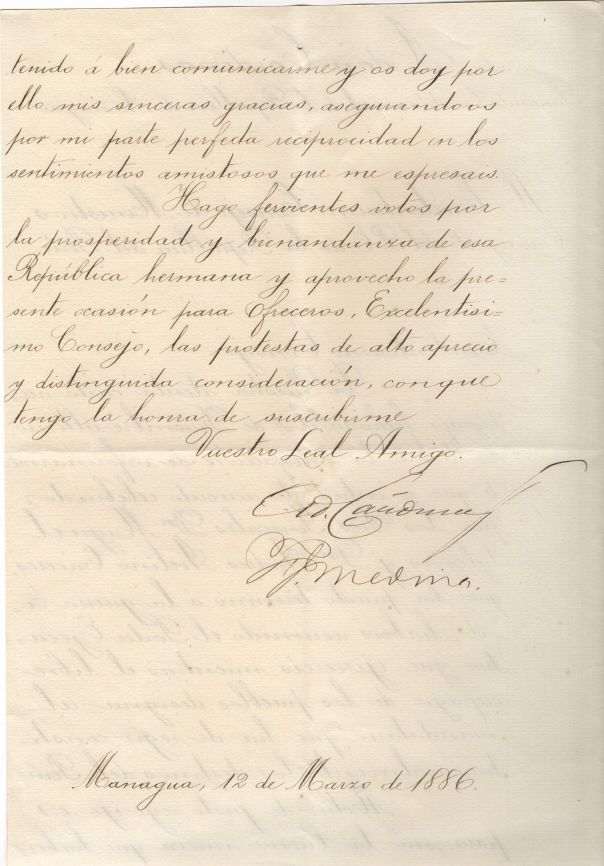 tenido á bien comunicarme y os doy por
ello mis sinceras gracias, asegurandoos
por mi parte perfecta reciprocidad en los
sentimientos amistosos que me espresais.
Hago fervientes votos por
la prosperidad y bienandanza de esa
República hermana y aprovecho la pre=
sente ocasión para ofreceros, Excelentisi=
mo Consejo, las protestas de alto aprecio
y distinguida consideración, con que
tengo la honra de suscribirme
Vuestro Leal Amigo.
Ad. Cárdenas
F. Medina.
Managua, 12 de Marzo de 1886.